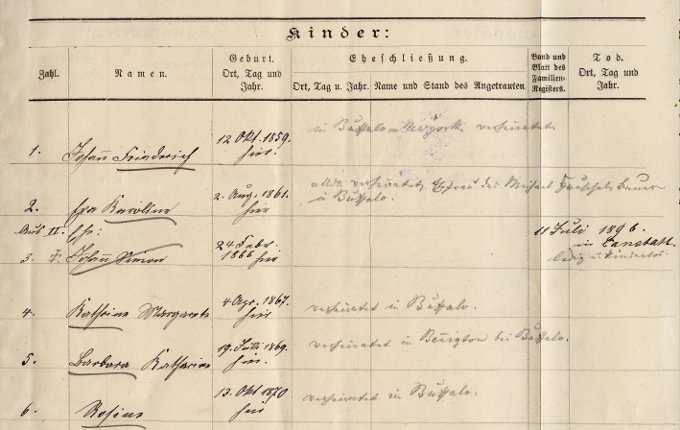 Kinder:
Zahl.
Namen.
Geburt.
Ort, Tag und
Jahr.
Eheschließung.
Ort, Tag u. Jahr. Name und Stand des Angetrauten
Band und
Blatt des
Familien-
Registers.
Tod.
Ort, Tag und
Jahr.
1.
Johann Friederich
12 Okt. 1859.
hier.
in Buffalo - Newyork verheiratet
2.
Eva Karoline
2. Aug. 1861.
hier
verheiratet, Ehefrau des Michael
in Buffalo.
Aus II. Ehe:
3. Johann Simon
24 Febr.
1866 hier
11 Juli 1896.
in Canstatt
ledig u. kinderlos.
4.
Kathrine Margareta
4 Apr. 1867.
hier
verheiratet in Buffalo.
5.
Barbara Katharina
19. Juli 1869.
hier.
verheiratet in Benigton bei Buffalo.
6.
Rosine
13. Okt 1870
hier
verheiratet in Buffalo.